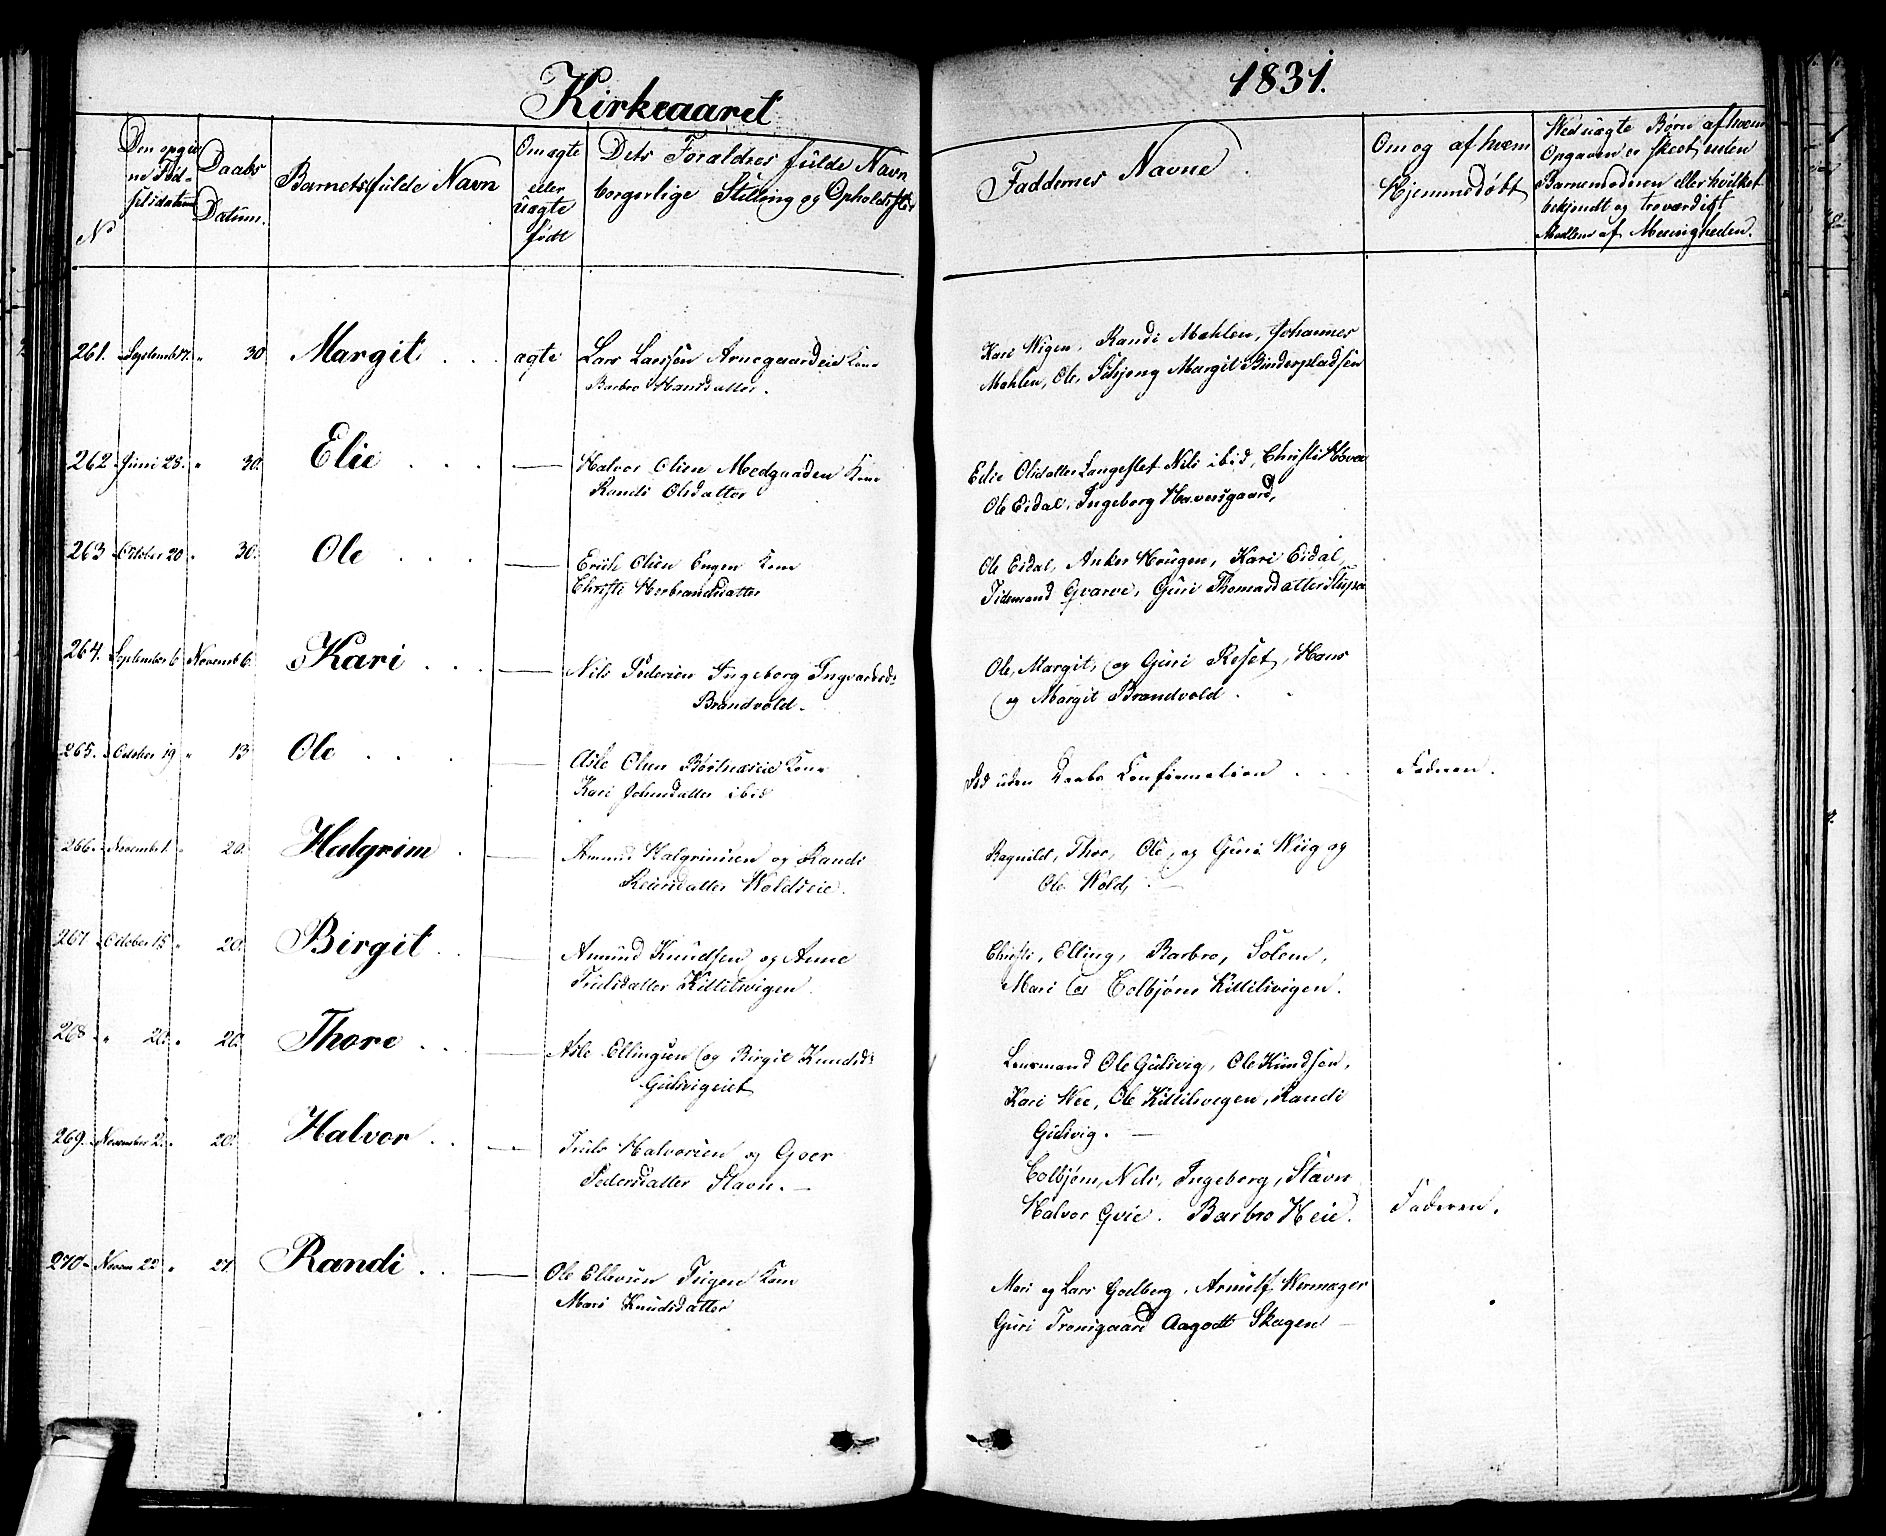 Kirkeaaret
1831.
No
Den opgivne Fødselsdatum
Daabs Datum.
Barnets fulde Navn
Om ægte eller uægte født
Dets Forældres fulde Navn
borgerlige Stilling og Opholdssted
Faddernes Navne.
Om og af hvem
Hjemmedøbt
Ved uægte Børn af hvem
Opgaven er skeet, enten
Barnemoderen eller hvilket
bekjendt og troværdigt
Medlem af Meenigheden.
261. Septemb 17. " 30 Margit . . . ægte Lars Larssen Arnegaardeie Kone
Barbro Hansdatter.
Kari Wigen, Randi Mahlen, Johannes
Mahlen, Ole, Margit Binderpladsen
262 Juni 25. " 30. Elie . . . — Halvor Olsen Medgaarden Kone
Randi Olsdatter
Elie Olsdatter Langeslet Nils ibid, Christi Hove
Ole Eidal, Ingeborg Haversgaard,
263 October 20 " 30. Ole . . . — Erich Olsen Engen Kone
Christi Herbrandsdatter
Ole Eidal, Anker Hougen, Kari Eidal,
Tidemand Qvarve, Guri Thomasdatter
264. September 6 Novemb 6. Kari . . . — Nils Pedersen Ingeborg Ingvaldsd:
Brandvold.
Ole, Margit, og Guri Reset, Hans
og Margit Brandvold.
265. October 19 " 13 Ole . . . — Asle Olsen Kone
Kari Johnsdatter ibid
Død uden Daabs Confirmation . . . Faderen.
266. Novemb 1. " 20. Halgrim . — Amund Halgrimsen og Randi
Reiersdatter Woldseie.
Ragnild, Thor, Ole, og Guri Wiig og
Ole Wold, —
267 October 15 " 20. Birgit . . — Amund Knudsen og Anne
Trulsdatter Kittilsvigen.
Christi, Elling, Barbro, Solem,
Mari og Colbjørn Kittilsvigen.
268 " 20. " 20. Thore . . — Asle Ellingsen og Birgit Knudsd:
Gulsvigeiet
Lensmand Ole Gulsvig, Ole Knudsen,
Kari Wee, Ole Kittilsvigen, Randi
Gulsvig. —
269. November 2. " 20. Halvor . . — Truls Halvorsen og Goer
Pedersdatter Stavn. —
Colbjørn, Nils, Ingeborg, Stavn
Halvor Qvie. Barbro Heie. Faderen.
270 Novem 22 " 27. Randi . . — Ole Ellevsen Tiigen Kone
Mari Knudsdatter
Mari og Lars Golberg, Arnulf Wermager
Guri Tronsgaard Aagodt Skagen —